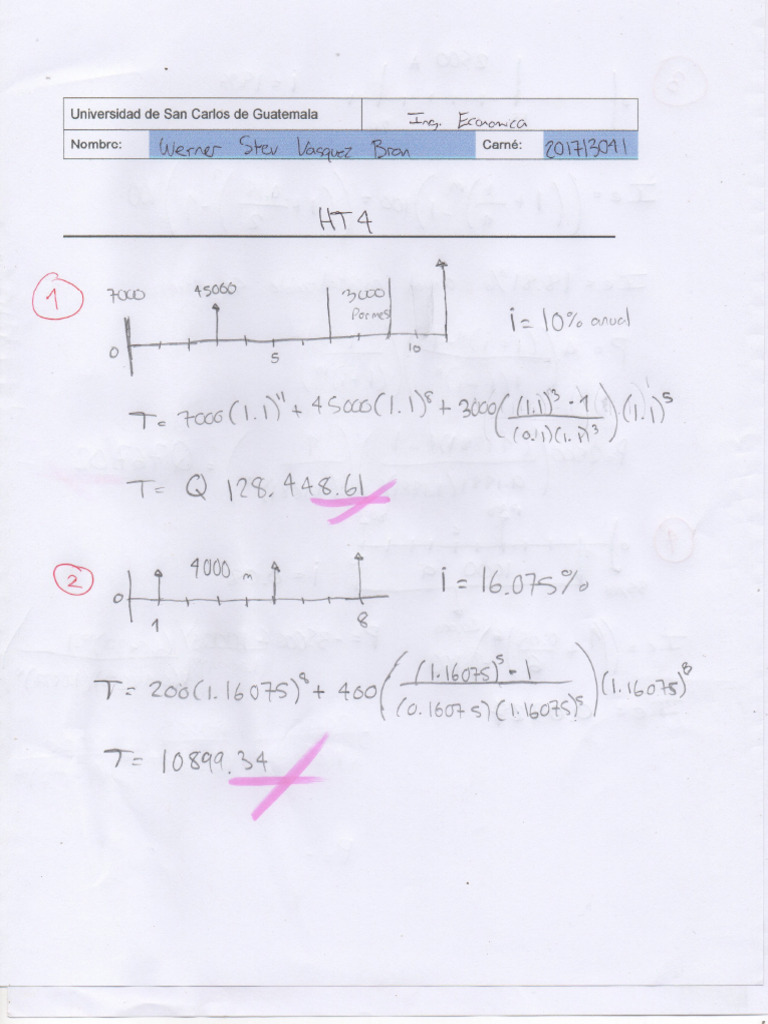 Universidad de San Carlos de Guatemala Ing. Economica
Nombre: Werner Stev Vasquez Bran Carné: 201713041
HT4
1
7000 45000 3000
Por mes
0 5 10
i = 10% anual
T = 7000(1.1)^11 + 45000(1.1)^8 + 3000((1.1)^3 - 1 / (0.1)(1.1)^3)(1.1)^5
T = Q 128.448.61
2
4000 m
0 1 8
i = 16.075%
T = 200(1.16075)^8 + 400((1.16075)^5 - 1 / (0.16075)(1.16075)^5)(1.16075)^8
T = 10899.34